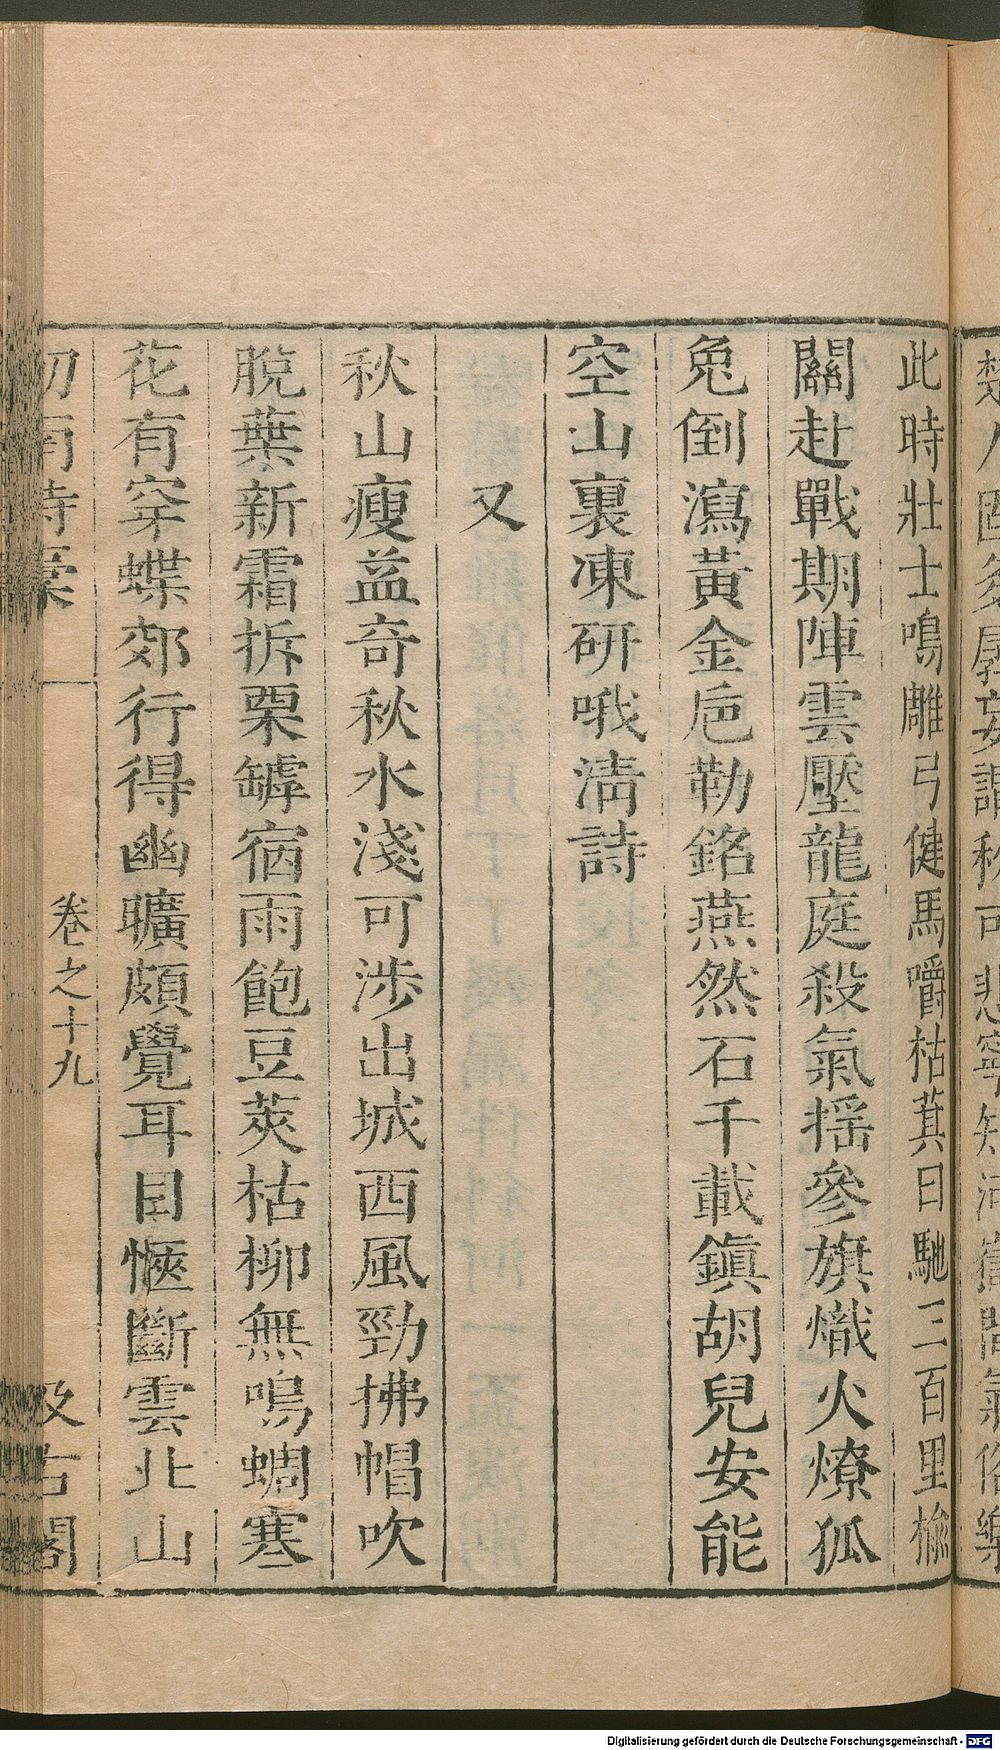 此時壯士鳴雕弓健馬嚼枯萁日馳三百里榆
關赴戰期陣雲壓龍庭殺氣揺參旗熾火燎狐
兔倒瀉黃金巵勒銘燕然石千載鎮胡兒安能
空山裏凍硏哦淸詩
又
秋山瘦益奇秋水淺可涉出城西風勁拂帽吹
脫葉新霜拆栗罅宿雨飽豆莢枯柳無鳴蜩寒
花有穿蝶郊行得幽曠頗覺耳目愜斷雲北山
卷之十九
Digitalisierung gefördert durch die Deutsche Forschungsgemeinschaft - DFG